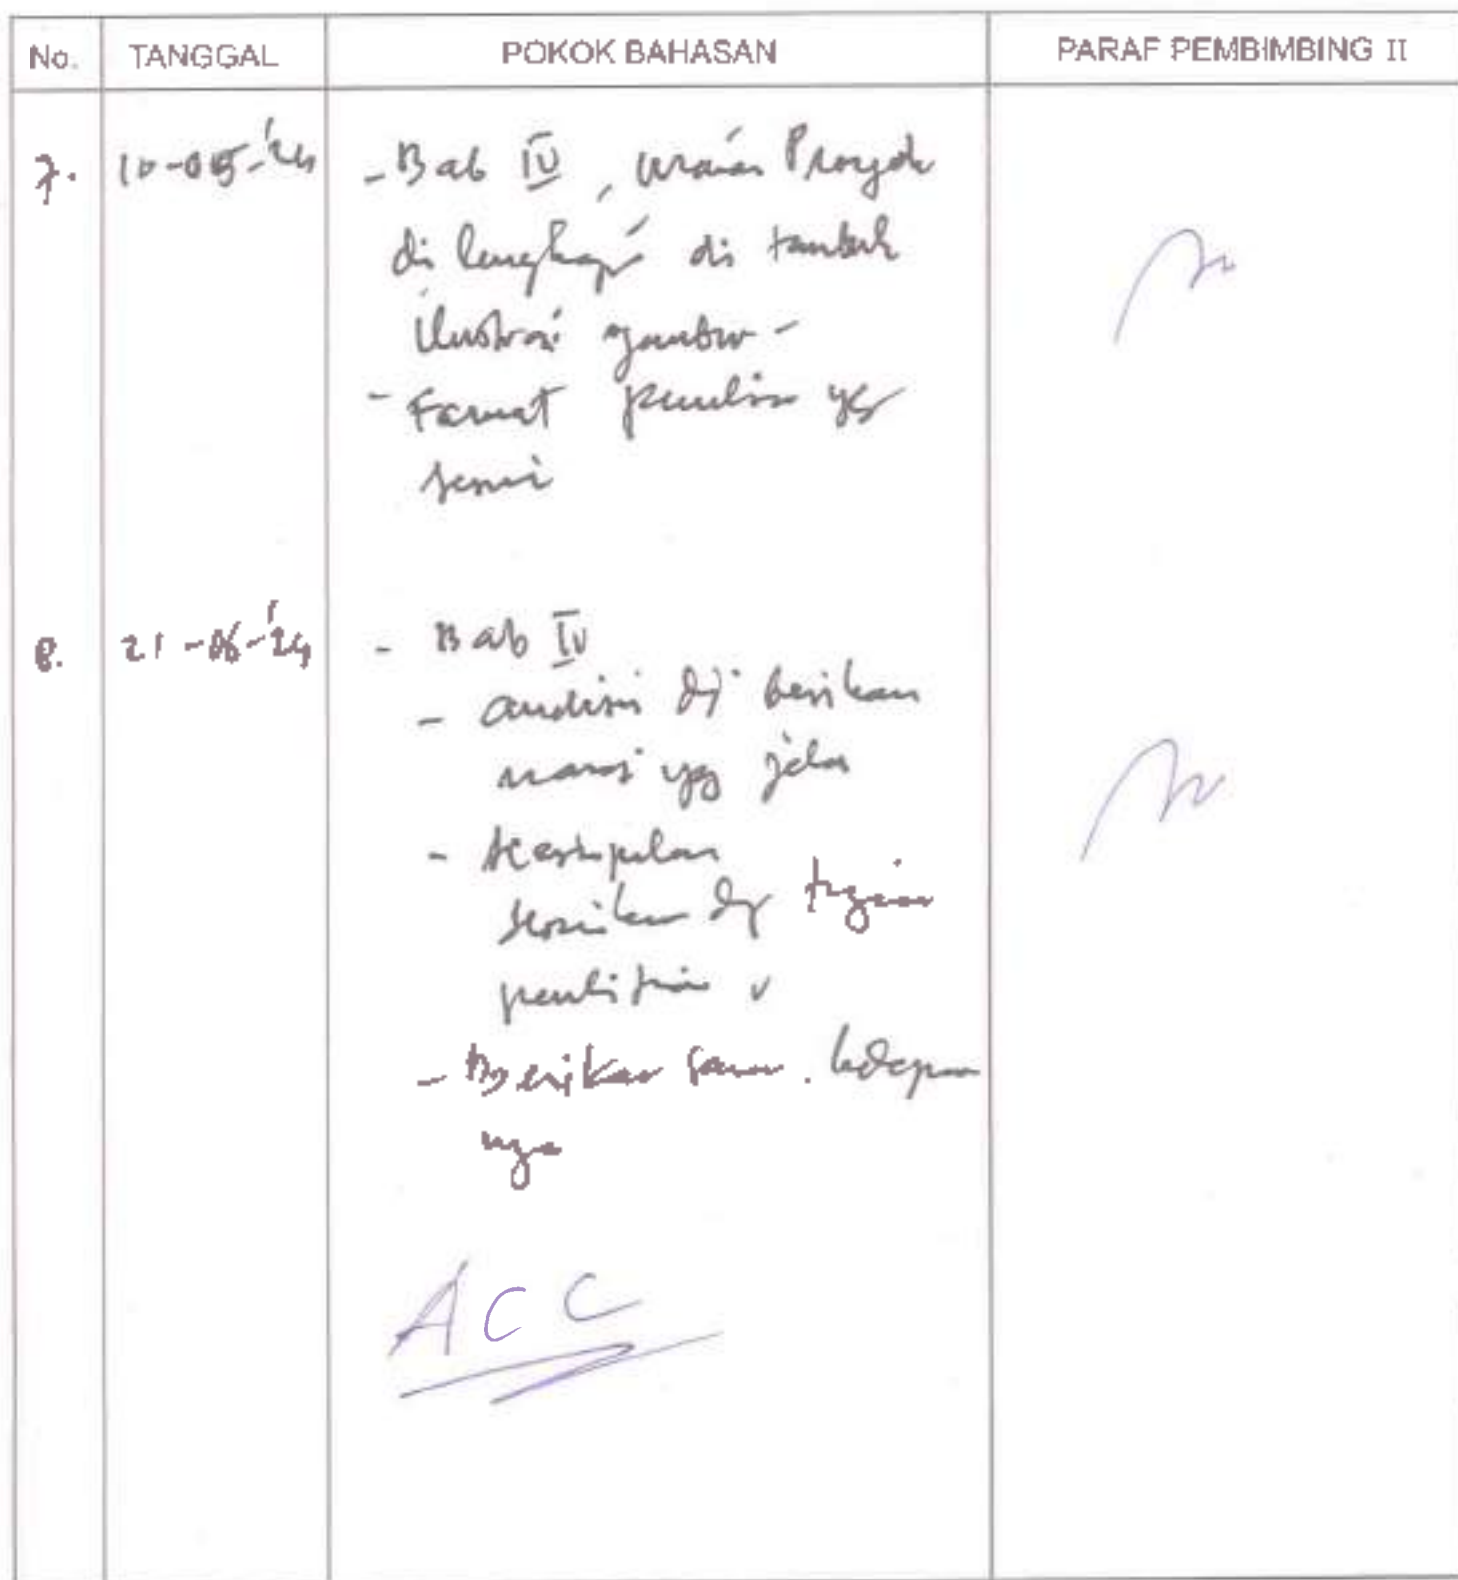 No. TANGGAL POKOK BAHASAN PARAF PEMBIMBING II
7. 10-05-'24 - Bab IV, uraian Proyek
di lengkapi di tambah
ilustrasi gambar -
- Format penulisan yg
sesuai
8. 21-06-'24 - Bab IV
- analisis di berikan
narasi yg jelas
- Kesimpulan
sesuaikan dg tujuan
penelitian v
- Berikan saran. kedepan
nya
ACC